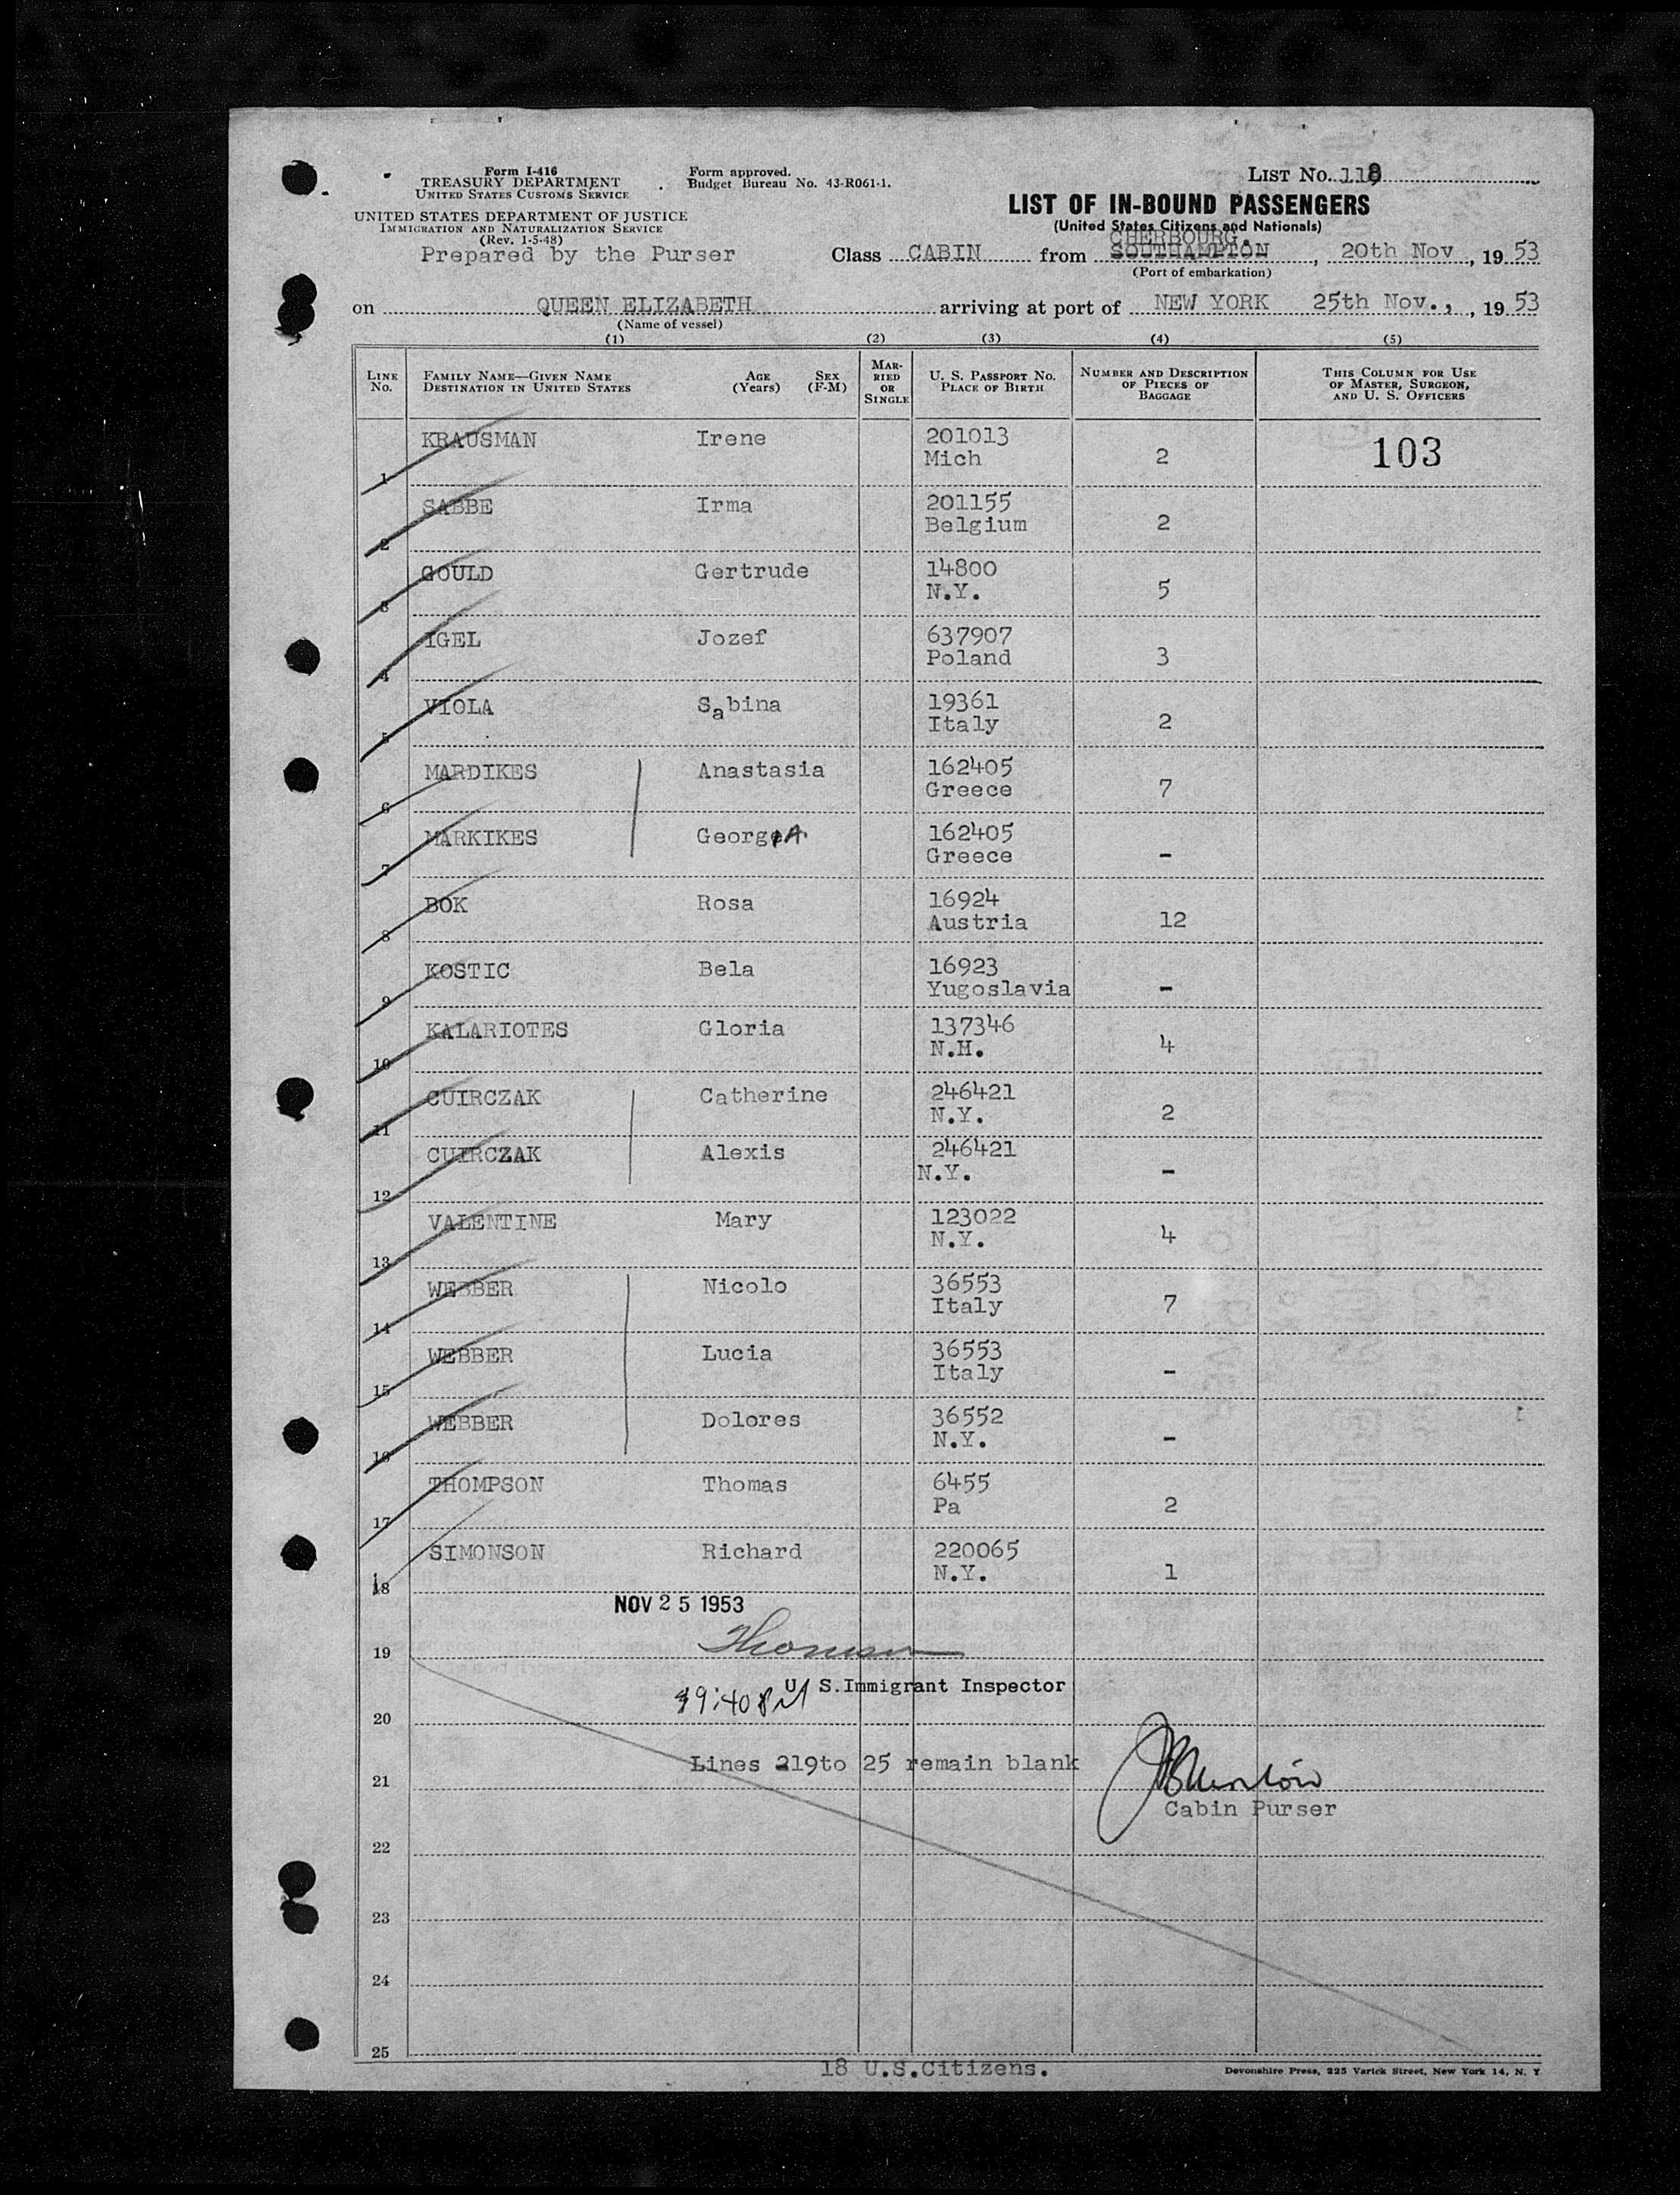 Form I-416
TREASURY DEPARTMENT
UNITED STATES CUSTOMS SERVICE
Form approved.
Budget Bureau No. 43-R061-1.
LIST No. 118
UNITED STATES DEPARTMENT OF JUSTICE
IMMIGRATION AND NATURALIZATION SERVICE
(Rev. 1-5-48)
LIST OF IN-BOUND PASSENGERS
(United States Citizens and Nationals)
CHERBOURG.
Prepared by the Purser Class CABIN from SOUTHAMPTON, 20th Nov, 19 53
(Port of embarkation)
on QUEEN ELIZABETH arriving at port of NEW YORK 25th Nov., , 19 53
(Name of vessel)
(1) (2) (3) (4) (5)
LINE No. FAMILY NAME—GIVEN NAME DESTINATION IN UNITED STATES AGE (Years) SEX (F-M) MARRIED OR SINGLE U. S. PASSPORT NO. PLACE OF BIRTH NUMBER AND DESCRIPTION OF PIECES OF BAGGAGE THIS COLUMN FOR USE OF MASTER, SURGEON, AND U. S. OFFICERS
KRAUSMAN Irene 201013
1 Mich 2 103
SABBE Irma 201155
2 Belgium 2
GOULD Gertrude 14800
3 N.Y. 5
IGEL Jozef 637907
4 Poland 3
VIOLA Sabina 19361
5 Italy 2
MARDIKES Anastasia 162405
6 Greece 7
MARKIKES GeorgeA 162405
7 Greece -
BOK Rosa 16924
8 Austria 12
KOSTIC Bela 16923
9 Yugoslavia -
KALARIOTES Gloria 137346
10 N.H. 4
CUIRCZAK Catherine 246421
11 N.Y. 2
CUIRCZAK Alexis 246421
12 N.Y. -
VALENTINE Mary 123022
13 N.Y. 4
WEBBER Nicolo 36553
14 Italy 7
WEBBER Lucia 36553
15 Italy -
WEBBER Dolores 36552
16 N.Y. -
THOMPSON Thomas 6455
17 Pa 2
SIMONSON Richard 220065
18 N.Y. 1
NOV 25 1953
19
U S.Immigrant Inspector
9:40 PM
20
Lines 219to 25 remain blank
21
Cabin Purser
22
23
24
25
18 U.S.Citizens.
Devonshire Press, 225 Varick Street, New York 14, N. Y